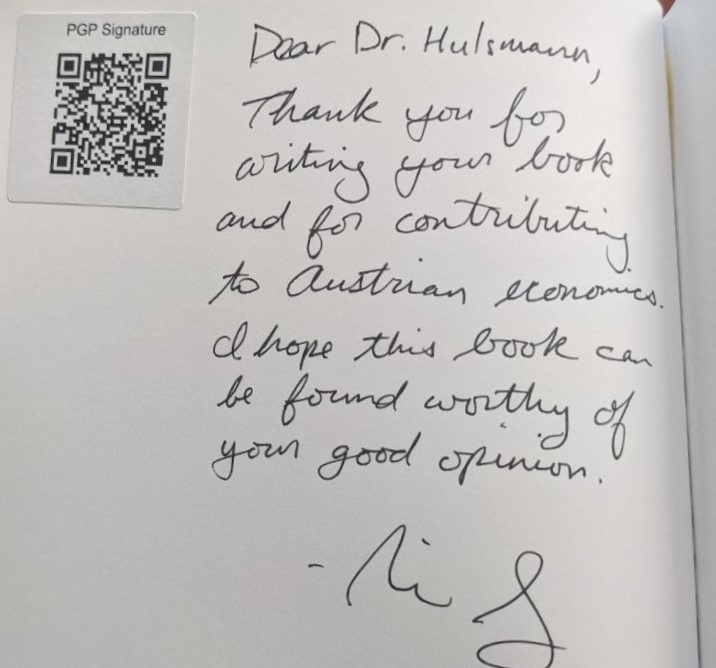 PGP Signature
Dear Dr. Hulsmann,
Thank you for
writing your book
and for contributing
to Austrian economics.
I hope this book can
be found worthy of
your good opinion.